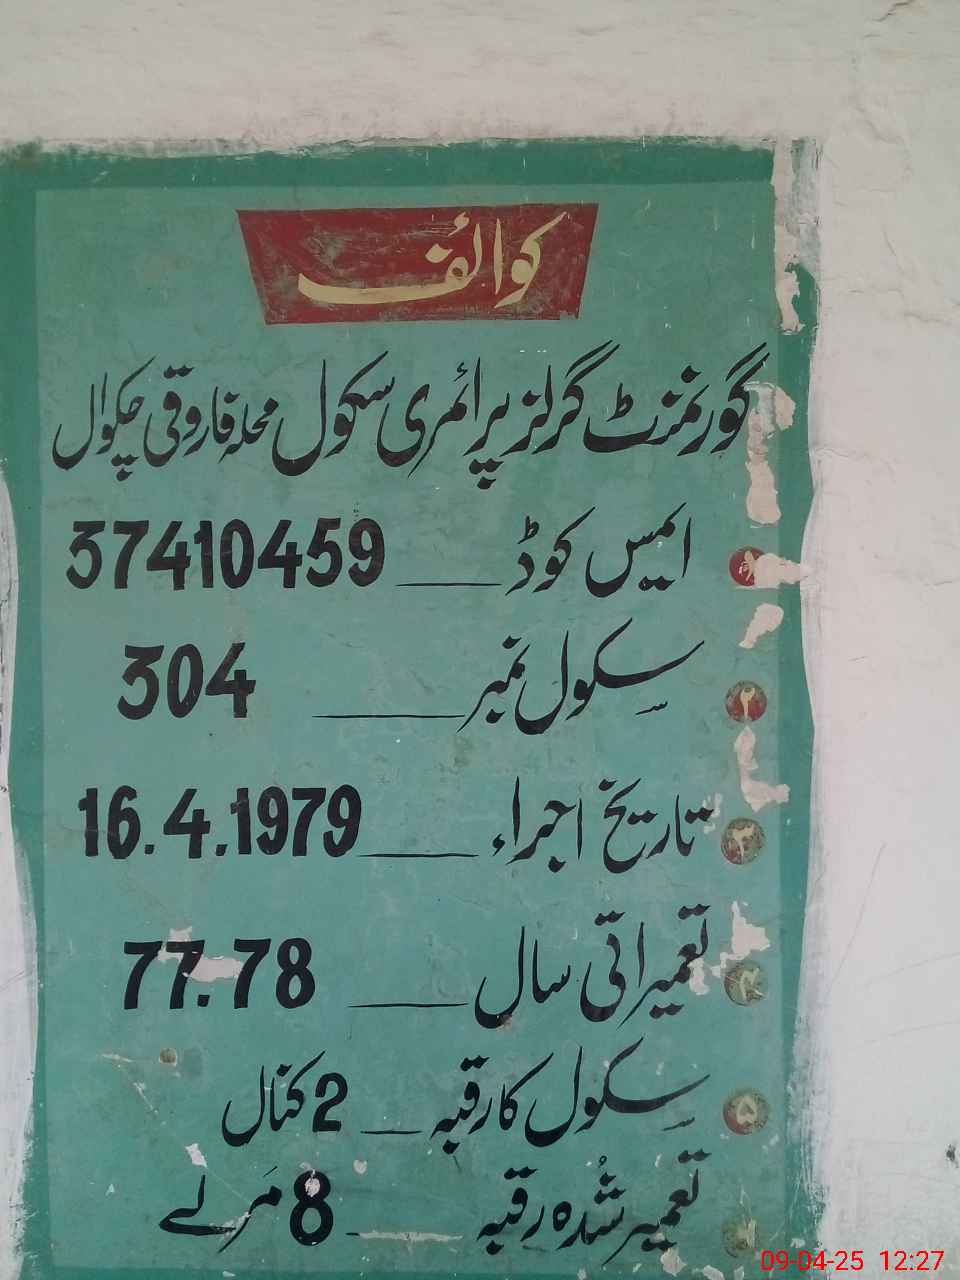 کوائف
گورنمنٹ گرلز پرائمری سکول محلہ فاروقی چکوال
ایمس کوڈ ــــ 37410459
۲ سکول نمبر ــــ 304
۳ تاریخ اجراء ــــ 16.4.1979
۴ تعمیراتی سال ــــ 77.78
۵ سکول کا رقبہ ــــ 2 کنال
تعمیر شُدہ رقبہ ــــ 8 مَرلے
09-04-25 12:27